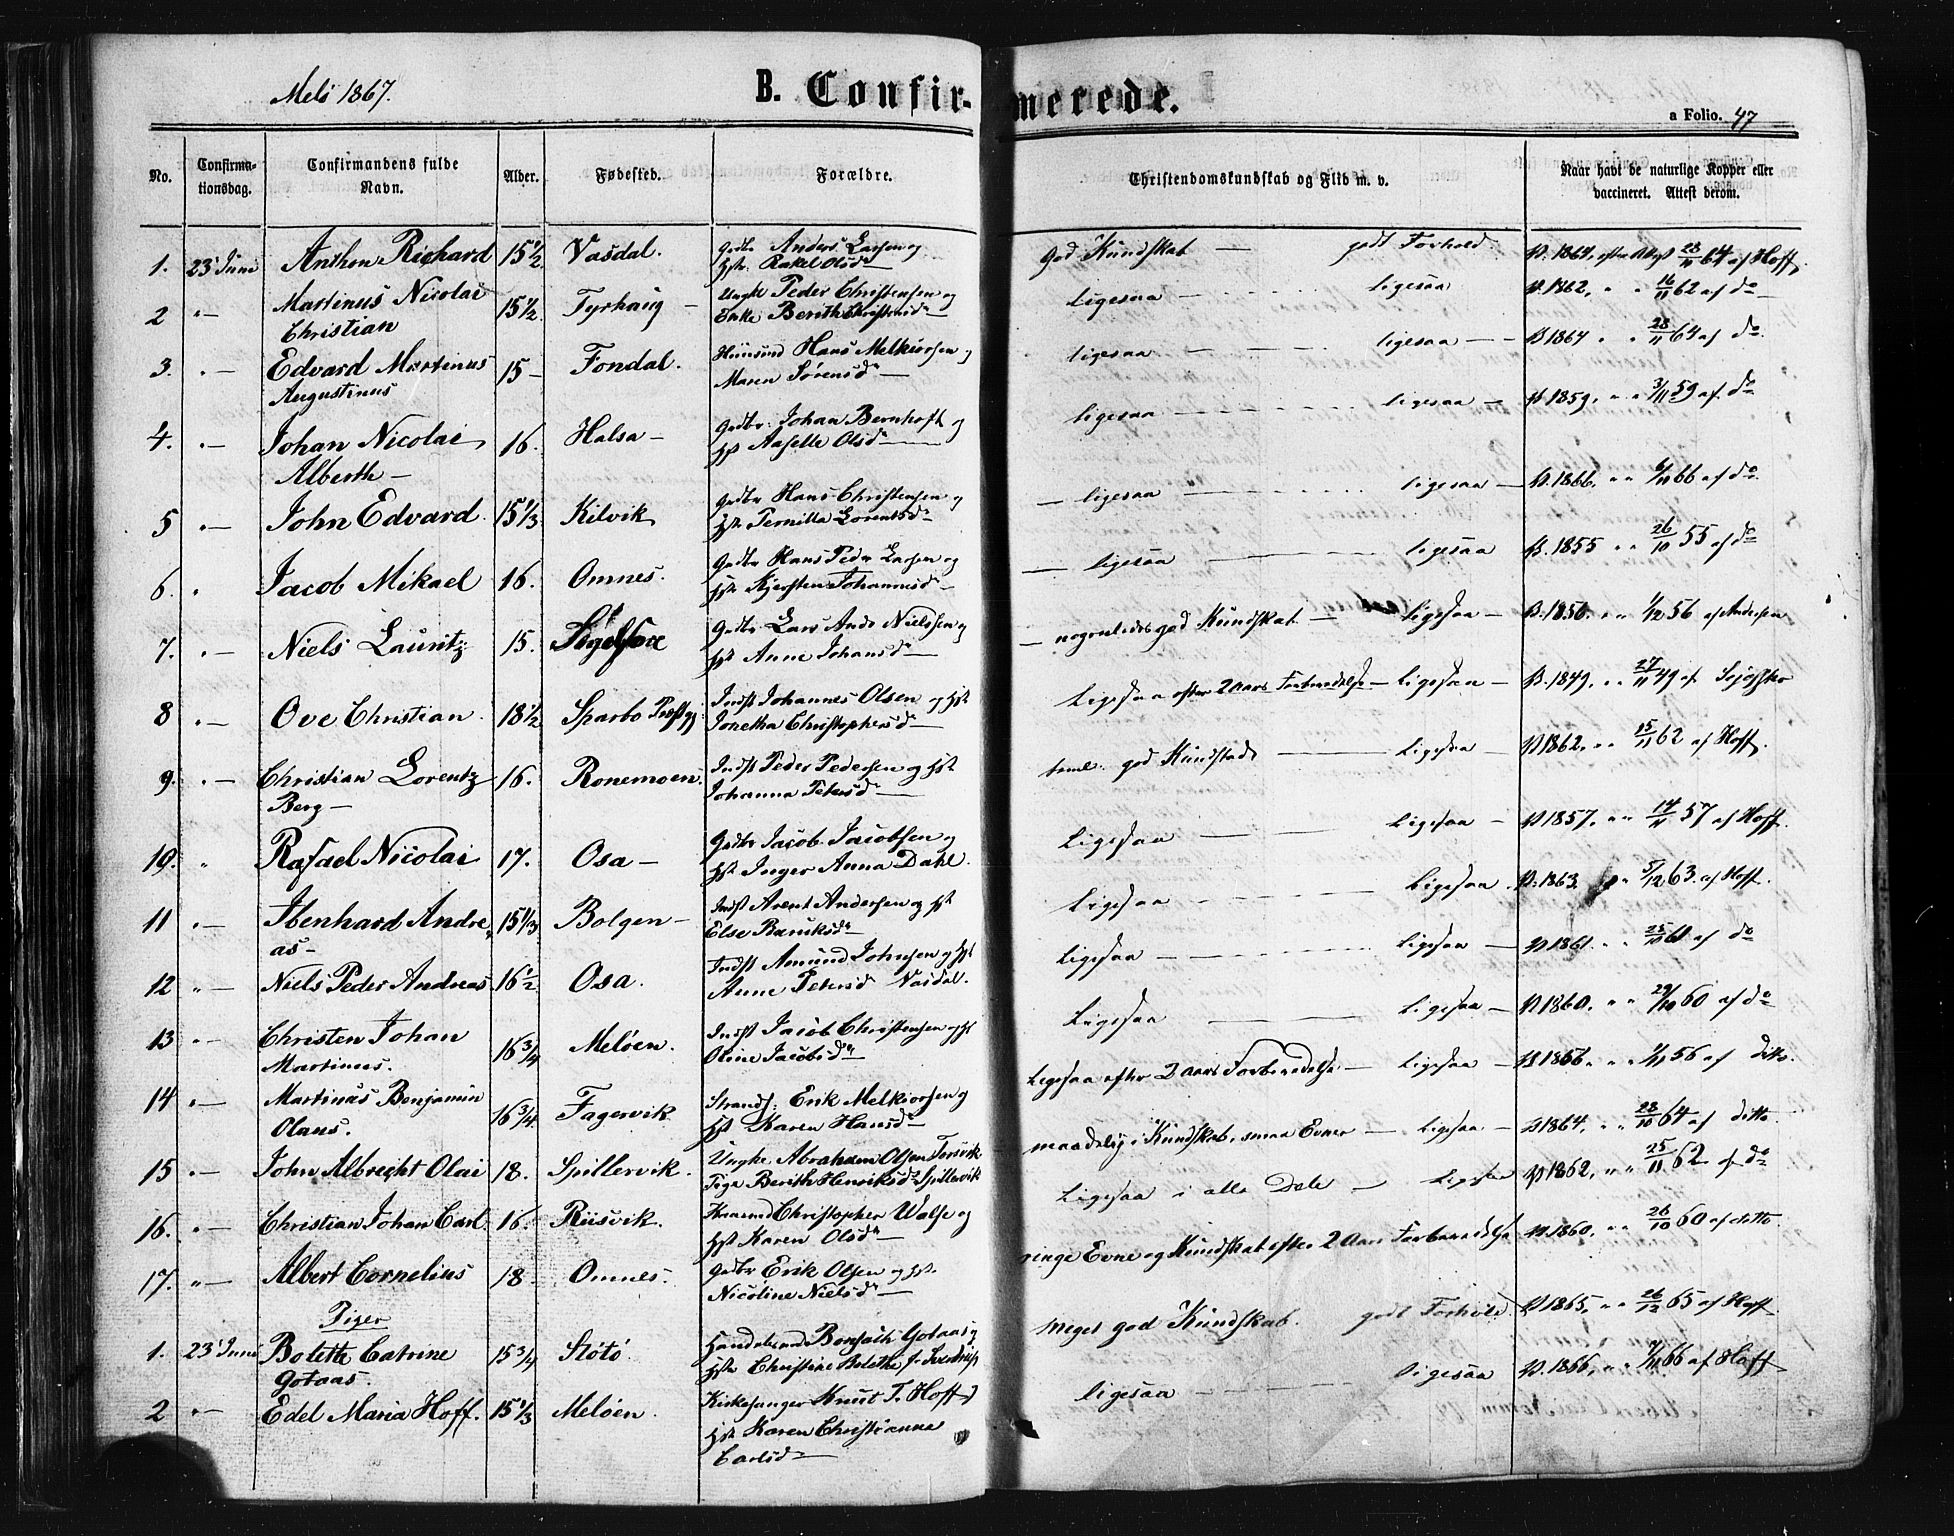 Melö 1867.
B. Confirmerede.
a Folio. 47
No. Confirmationsdag. Confirmandens fulde Navn. Alder. Fødested. Forældre. Christendomskundskab og Flid m. v. Naar havt de naturlige Kopper eller vaccineret. Attest derom.
1. 23 Juni Anthon Richard 15 1/2 Vasdal. Gdbr Anders Larsen og
Hst. Rakel Olsdr God Kundskab — godt Forhold V. 1864, efter Attest 28/11 64 af Hoff.
2 " Martinus Nicolai
Christian 15 1/2 Tyrhaug Ungk Peder Christensen og
Enke Berith ligesaa ligesaa V. 1862, " " 16/11 62 af do
3. " Edvard Martinus
Augustinus 15 Fondal. Huusmd Hans Melkiorsen og
Maren Sørensdr ligesaa ligesaa V 1864 " 28/11 64 af do.
4. " Johan Nicolai
Alberth 16. Halsa Gdbr. Johan Bernhoft og
Hst Olsdr ligesaa ligesaa V. 1859. " " 3/11 59 af do
5 " John Edvard 15 1/3 Kilvik Gdbr Hans Christensen og
Hst. Pernilla Lorentsdr ligesaa ligesaa V. 1866. " " 6/11 66 af do
6. " Jacob Mikael 16. Omnes. Gdbr Hans Pedr Larsen og
Hst. Kjersten Johannesdr ligesaa ligesaa V. 1855 " " 26/10 55 af do
7. " Niels Lauritz 15. Gdbr Lars Andr Nielssen og
Hst Anne Johansdr nogenledes god Kundskab ligesaa V. 1856. " " 1/12 56 af Andersen
8 " Ove Christian 18 1/2 Sparbo Præstgj: Indst Johannes Olsen og Hst
Jonetha Christophersdr Ligesaa efter 2 Aars Forberedelse Ligesaa V. 1849. " " 27/11 49 af
9. " Christian Lorentz
Berg 16. Ronemoen. Indst Peder Pedersen og Hst
Johanna Petersdr teml. god Kundskab Ligesaa V 1862. " " 15/11 62 af Hoff.
10. " Rafael Nicolai 17. Osa Gdbr Jacob Jacobsen og
Hst Inger Anna Dahl. Ligesaa Ligesaa V 1857. " " 14/11 57 af Hoff.
11 " Ibenhard Andre
as 15 1/3 Bolgen Indst Arent Andersen og Hst
Else Ligesaa Ligesaa V. 1863. " 5/12 63. af Hoff.
12 " Niels Peder Andreas 16 1/2 Osa. Indst Amund Johnsen og Hst
Anne Petersd Vasdal. Ligesaa Ligesaa V 1861. " af do
13 " Christen Johan
Martinus. 16 3/4 Meløen. Indst Jacob Christensen og Hst
Oline Jacobsdr Ligesaa Ligesaa V 1860. " " 29/10 60 af do
14 " Martinus Benjamin
Olaus. 16 3/4 Fagervik Strands: Erik Melkiorsen og
Hst Karen Hansdr Ligesaa efter 2 aars Forberedelse Ligesaa V 1856. " " 1/11 56 af ditto.
15 " John Albrecht Olai 18. Spillervik. Ungke Abraham Olsen Torsvik
Pige Berith Henriksdr Spillervik maadelig i Kundskab, smaa Evner Ligesaa V 1864. " 28/10 64 af ditto
16. " Christian Johan Carl 16. Riisvik. Christopher Walse og
Hst Karen Olsdr Ligesaa i alle Dele Ligesaa V 1862. " " 25/11 62 af do
17. " Albert Cornelius 18. Omnes. Gdbr Erik Olsen og Hst.
Nicoline Nielsdr ringe Evne og Kundskab efter 2 Aars Forberedelse V 1860. " " 26/10 60 af ditto
Piger
1. 23 Juni Bolette Catrine
Gotaas. 15 3/4 Støtø Gotaas og
Hst Christine Bolethe J. Meget god Kundskab. godt Forhold V 1865. " " 26/12 65 af Hoff
2 " Edel Maria Hoff. 15 1/3 Meløen. Kirkesanger Knut T. Hoff og
Hst Karen Christianna
Carlsdr ligesaa ligesaa V. 1866. " " 66 af Hoff